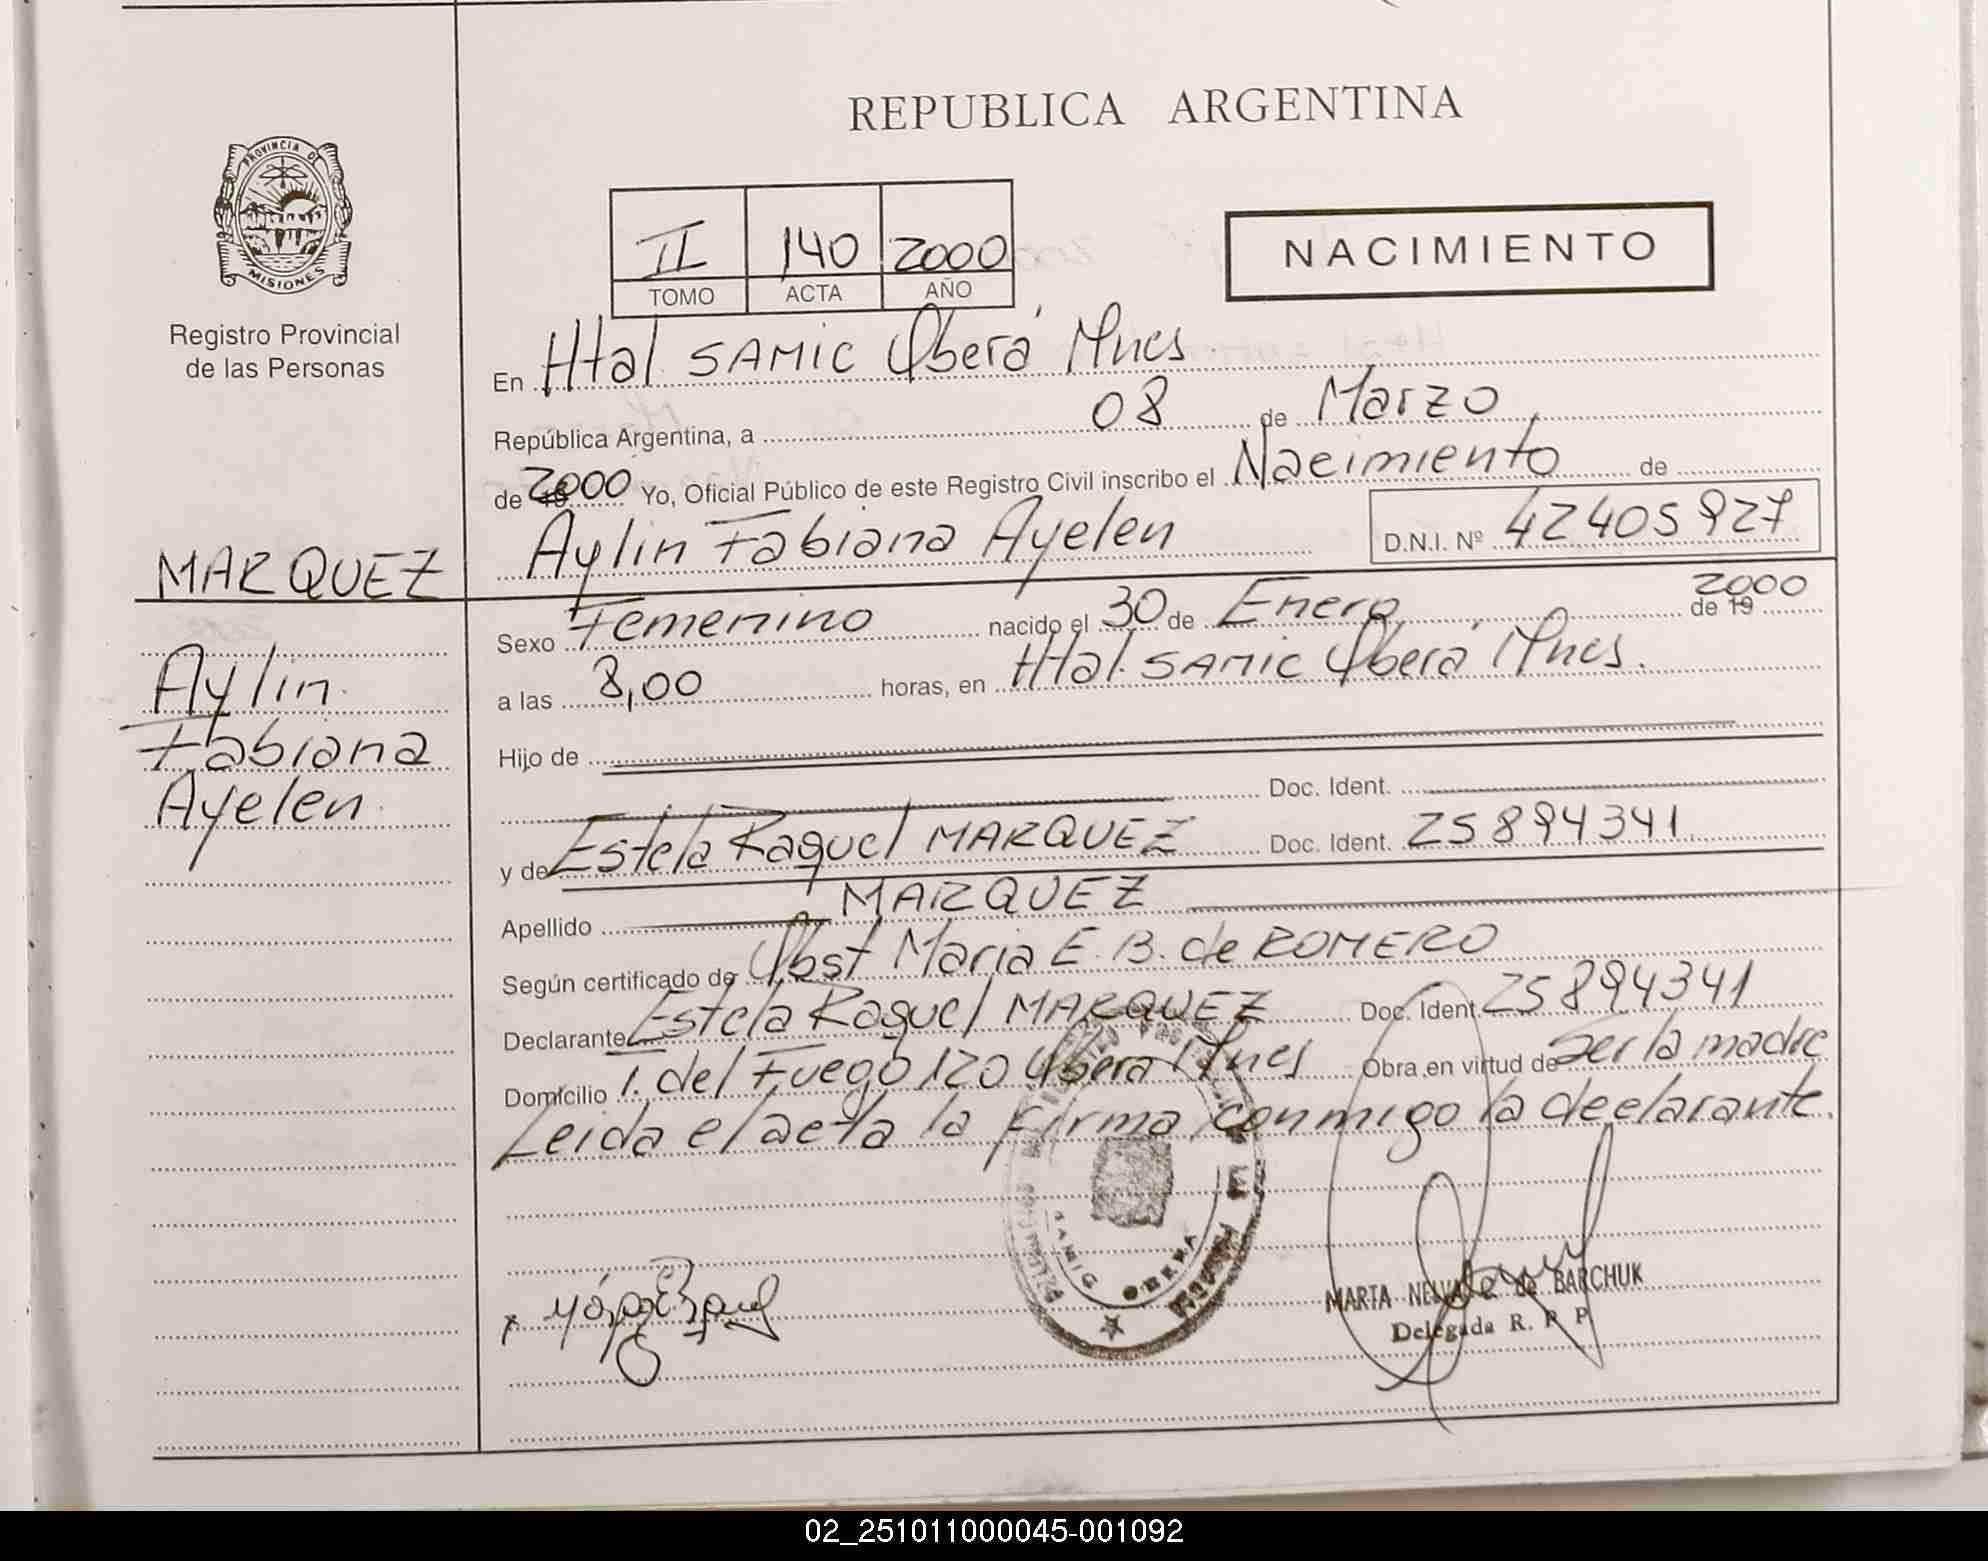 REPUBLICA ARGENTINA
PROVINCIA DE
MISIONES
Registro Provincial
de las Personas
II 140 2000
TOMO ACTA AÑO
NACIMIENTO
En Htal SAMIC Oberá Mnes
República Argentina, a 08 de Marzo
de 2000 Yo, Oficial Público de este Registro Civil inscribo el Nacimiento de
Aylin Fabiana Ayelen D.N.I. Nº 42405927
MARQUEZ
Aylin
Fabiana
Ayelen
Sexo Femenino nacido el 30 de Enero de 19 2000
a las 8,00 horas, en Htal. SAMIC Oberá Mnes.
Hijo de
Doc. Ident.
y de Estela Raquel MARQUEZ Doc. Ident. 25894341
Apellido MARQUEZ
Según certificado de Obst Maria E. B. de ROMERO
Declarante Estela Raquel MARQUEZ Doc. Ident. 25894341
Domicilio T. del Fuego 120 Oberá Mnes Obra en virtud de Ser la madre
Leida el acta la firma conmigo la declarante.
SAMIC OBERA
MARTA NELVA de BARCHUK
Delegada R. P. P
02_251011000045-001092